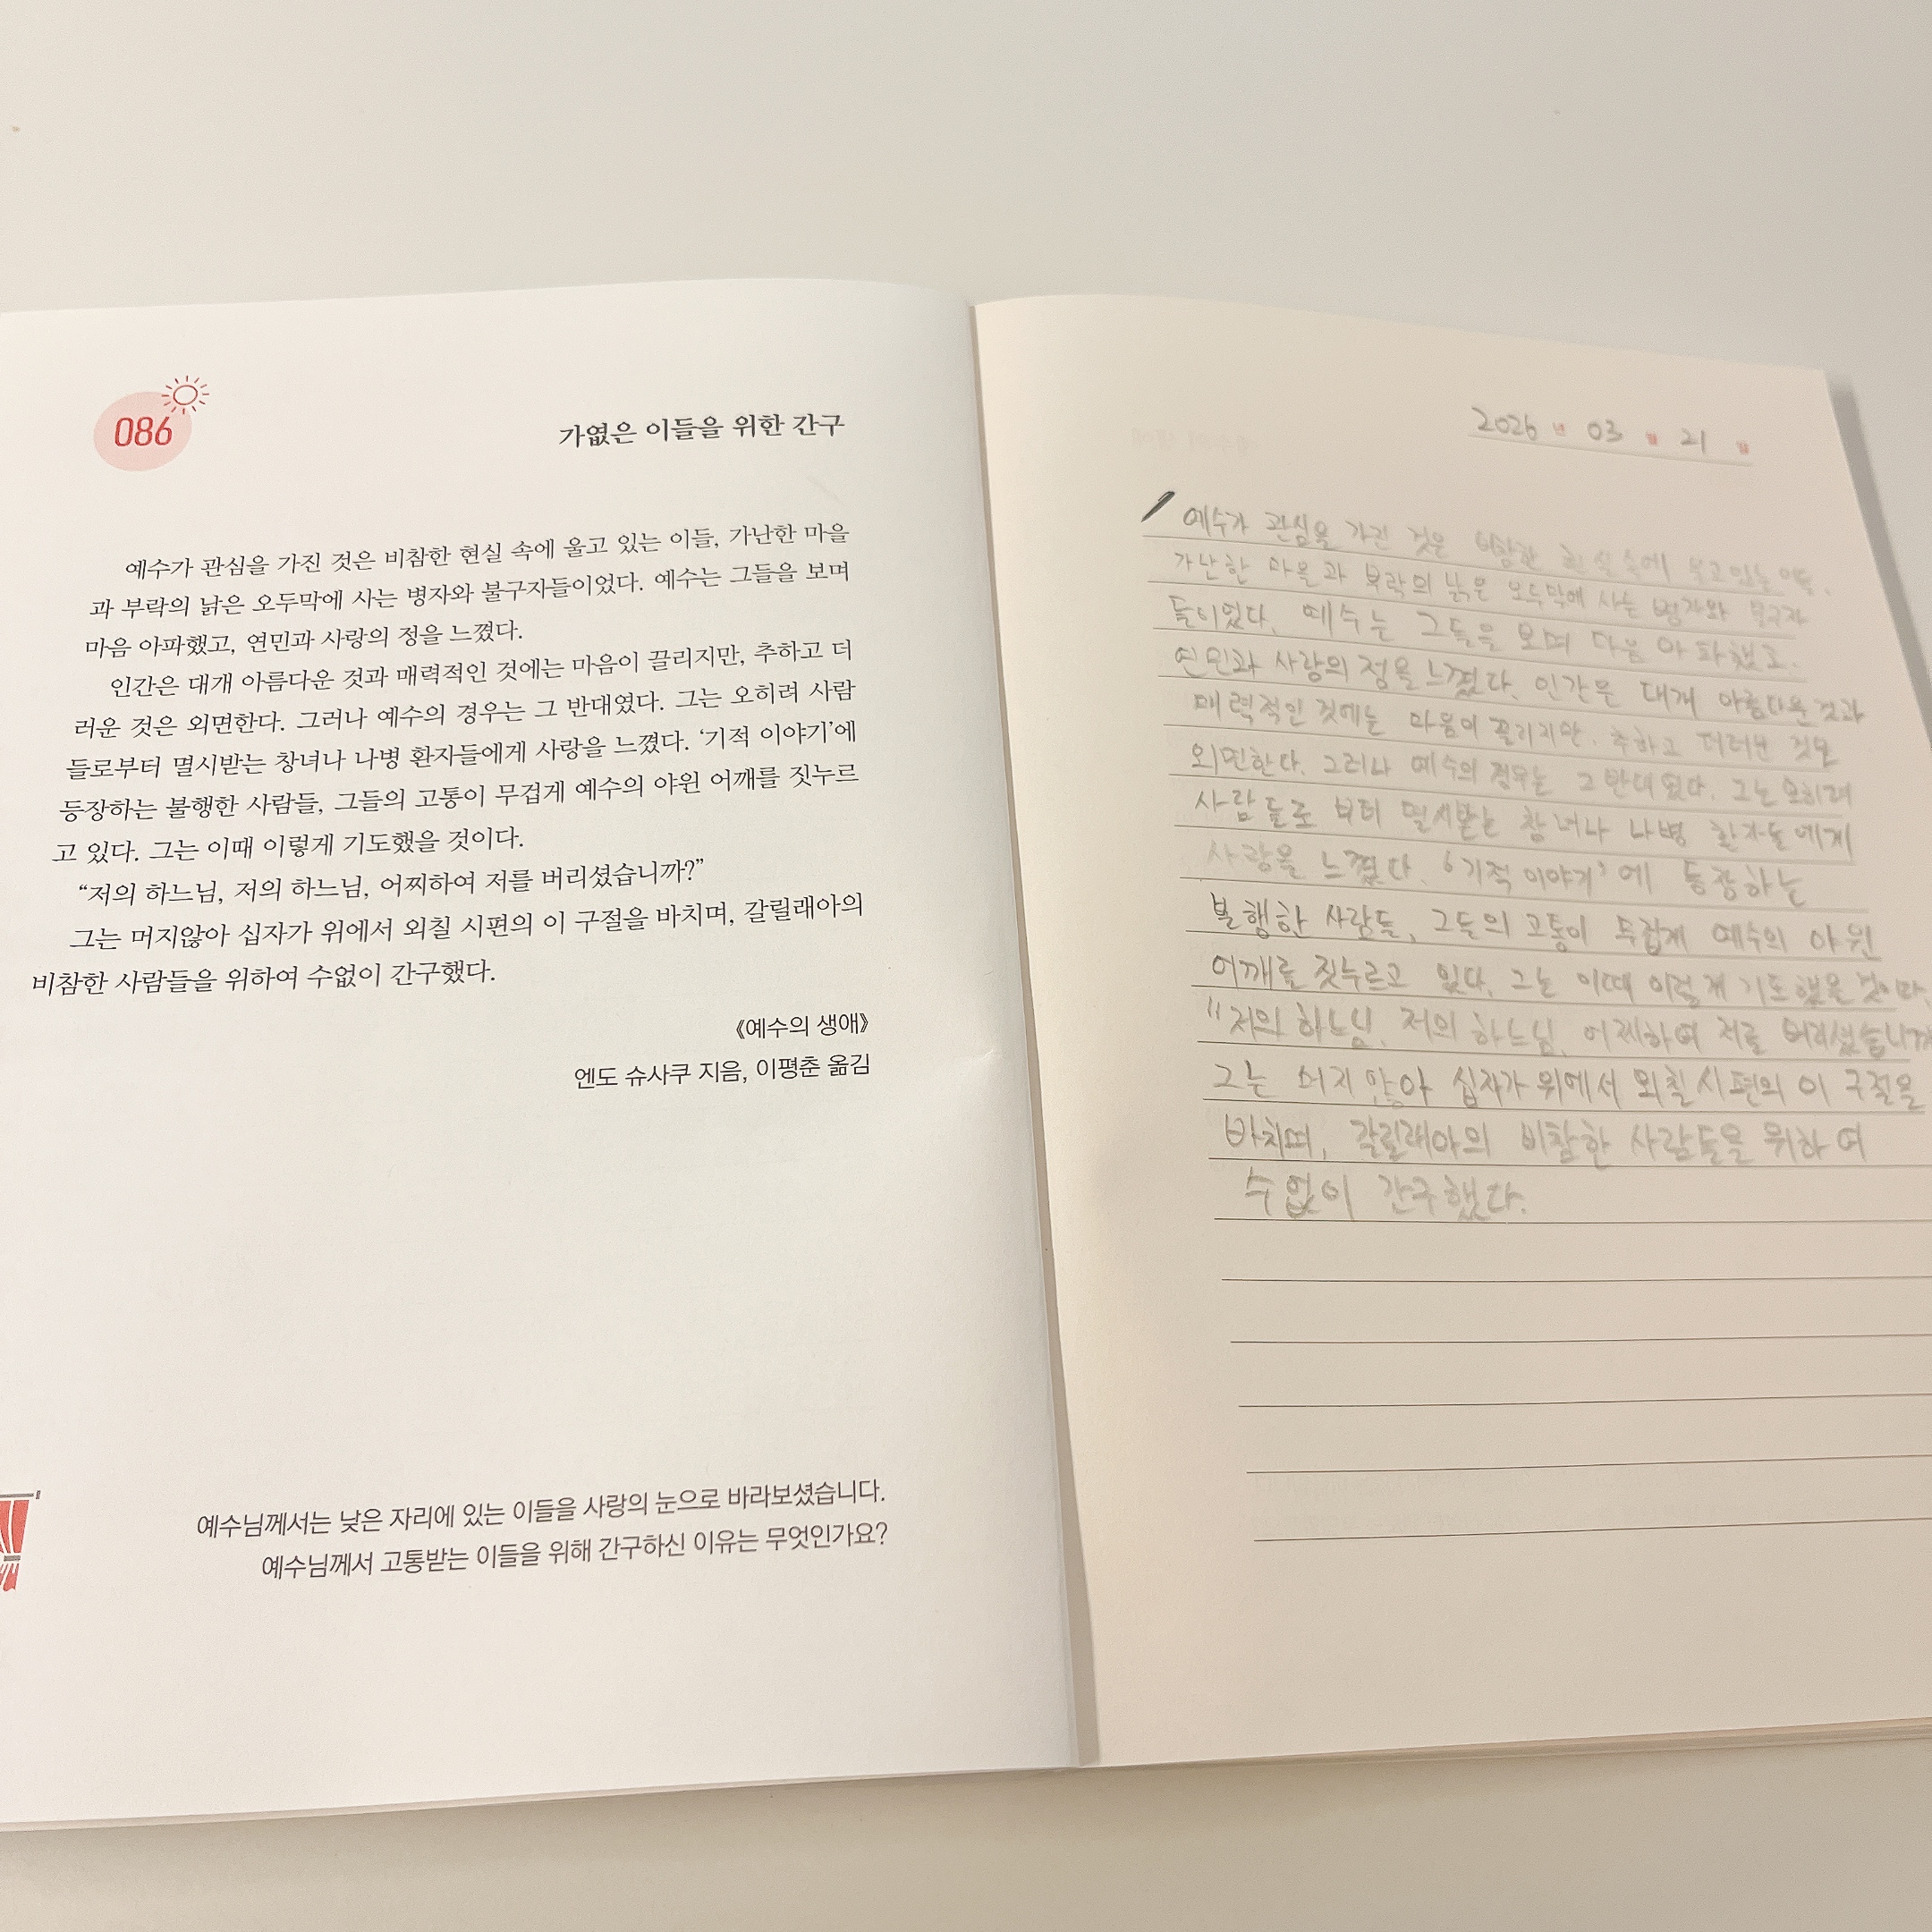 086
가엾은 이들을 위한 간구
예수가 관심을 가진 것은 비참한 현실 속에 울고 있는 이들, 가난한 마을
과 부락의 낡은 오두막에 사는 병자와 불구자들이었다. 예수는 그들을 보며
마음 아파했고, 연민과 사랑의 정을 느꼈다.
인간은 대개 아름다운 것과 매력적인 것에는 마음이 끌리지만, 추하고 더
러운 것은 외면한다. 그러나 예수의 경우는 그 반대였다. 그는 오히려 사람
들로부터 멸시받는 창녀나 나병 환자들에게 사랑을 느꼈다. ‘기적 이야기’에
등장하는 불행한 사람들, 그들의 고통이 무겁게 예수의 야윈 어깨를 짓누르
고 있다. 그는 이때 이렇게 기도했을 것이다.
“저의 하느님, 저의 하느님, 어찌하여 저를 버리셨습니까?”
그는 머지않아 십자가 위에서 외칠 시편의 이 구절을 바치며, 갈릴래아의
비참한 사람들을 위하여 수없이 간구했다.
《예수의 생애》
엔도 슈사쿠 지음, 이평춘 옮김
예수님께서는 낮은 자리에 있는 이들을 사랑의 눈으로 바라보셨습니다.
예수님께서 고통받는 이들을 위해 간구하신 이유는 무엇인가요?
2026 년 03 월 21 일
예수가 관심을 가진 것은 비참한 현실 속에 울고 있는 이들,
가난한 마을과 부락의 낡은 오두막에 사는 병자와 불구자
들이었다. 예수는 그들을 보며 마음 아파했고.
연민과 사랑의 정을 느꼈다. 인간은 대개 아름다운 것과
매력적인 것에는 마음이 끌리지만. 추하고 더러운 것은
외면한다. 그러나 예수의 경우는 그 반대였다. 그는 오히려
사람들로 부터 멸시받는 창녀나 나병 환자들에게
사랑을 느꼈다. ‘기적 이야기’에 등장하는
불행한 사람들, 그들의 고통이 무겁게 예수의 야윈
어깨를 짓누르고 있다. 그는 이때 이렇게 기도했을 것이다
"저의 하느님, 저의 하느님, 어찌하여 저를 버리셨습니까
그는 머지 않아 십자가 위에서 외칠 시편의 이 구절을
바치며, 갈릴래아의 비참한 사람들을 위하여
수없이 간구했다.